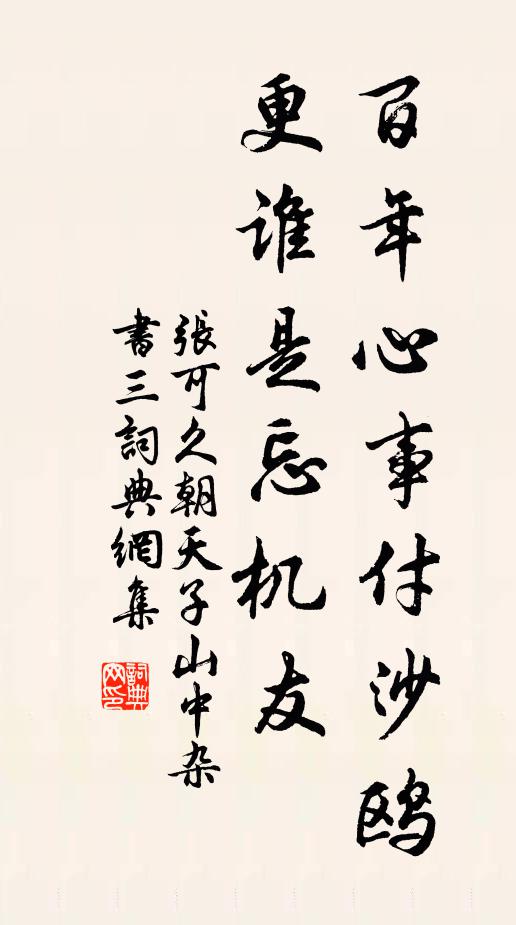 百年心事付沙鸥
更谁是忘机友
張可久朝天子山中杂
書三詞典網集
詞典网印